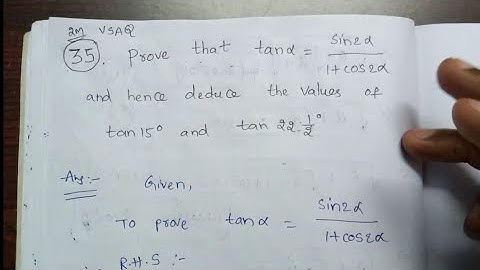 2M VSAQ
35. Prove that tanα = sin2α / 1+cos2α
and hence deduce the values of
tan15° and tan 22 1/2°
Ans:- Given,
To prove tanα = sin2α / 1+cos2α
R.H.S :-